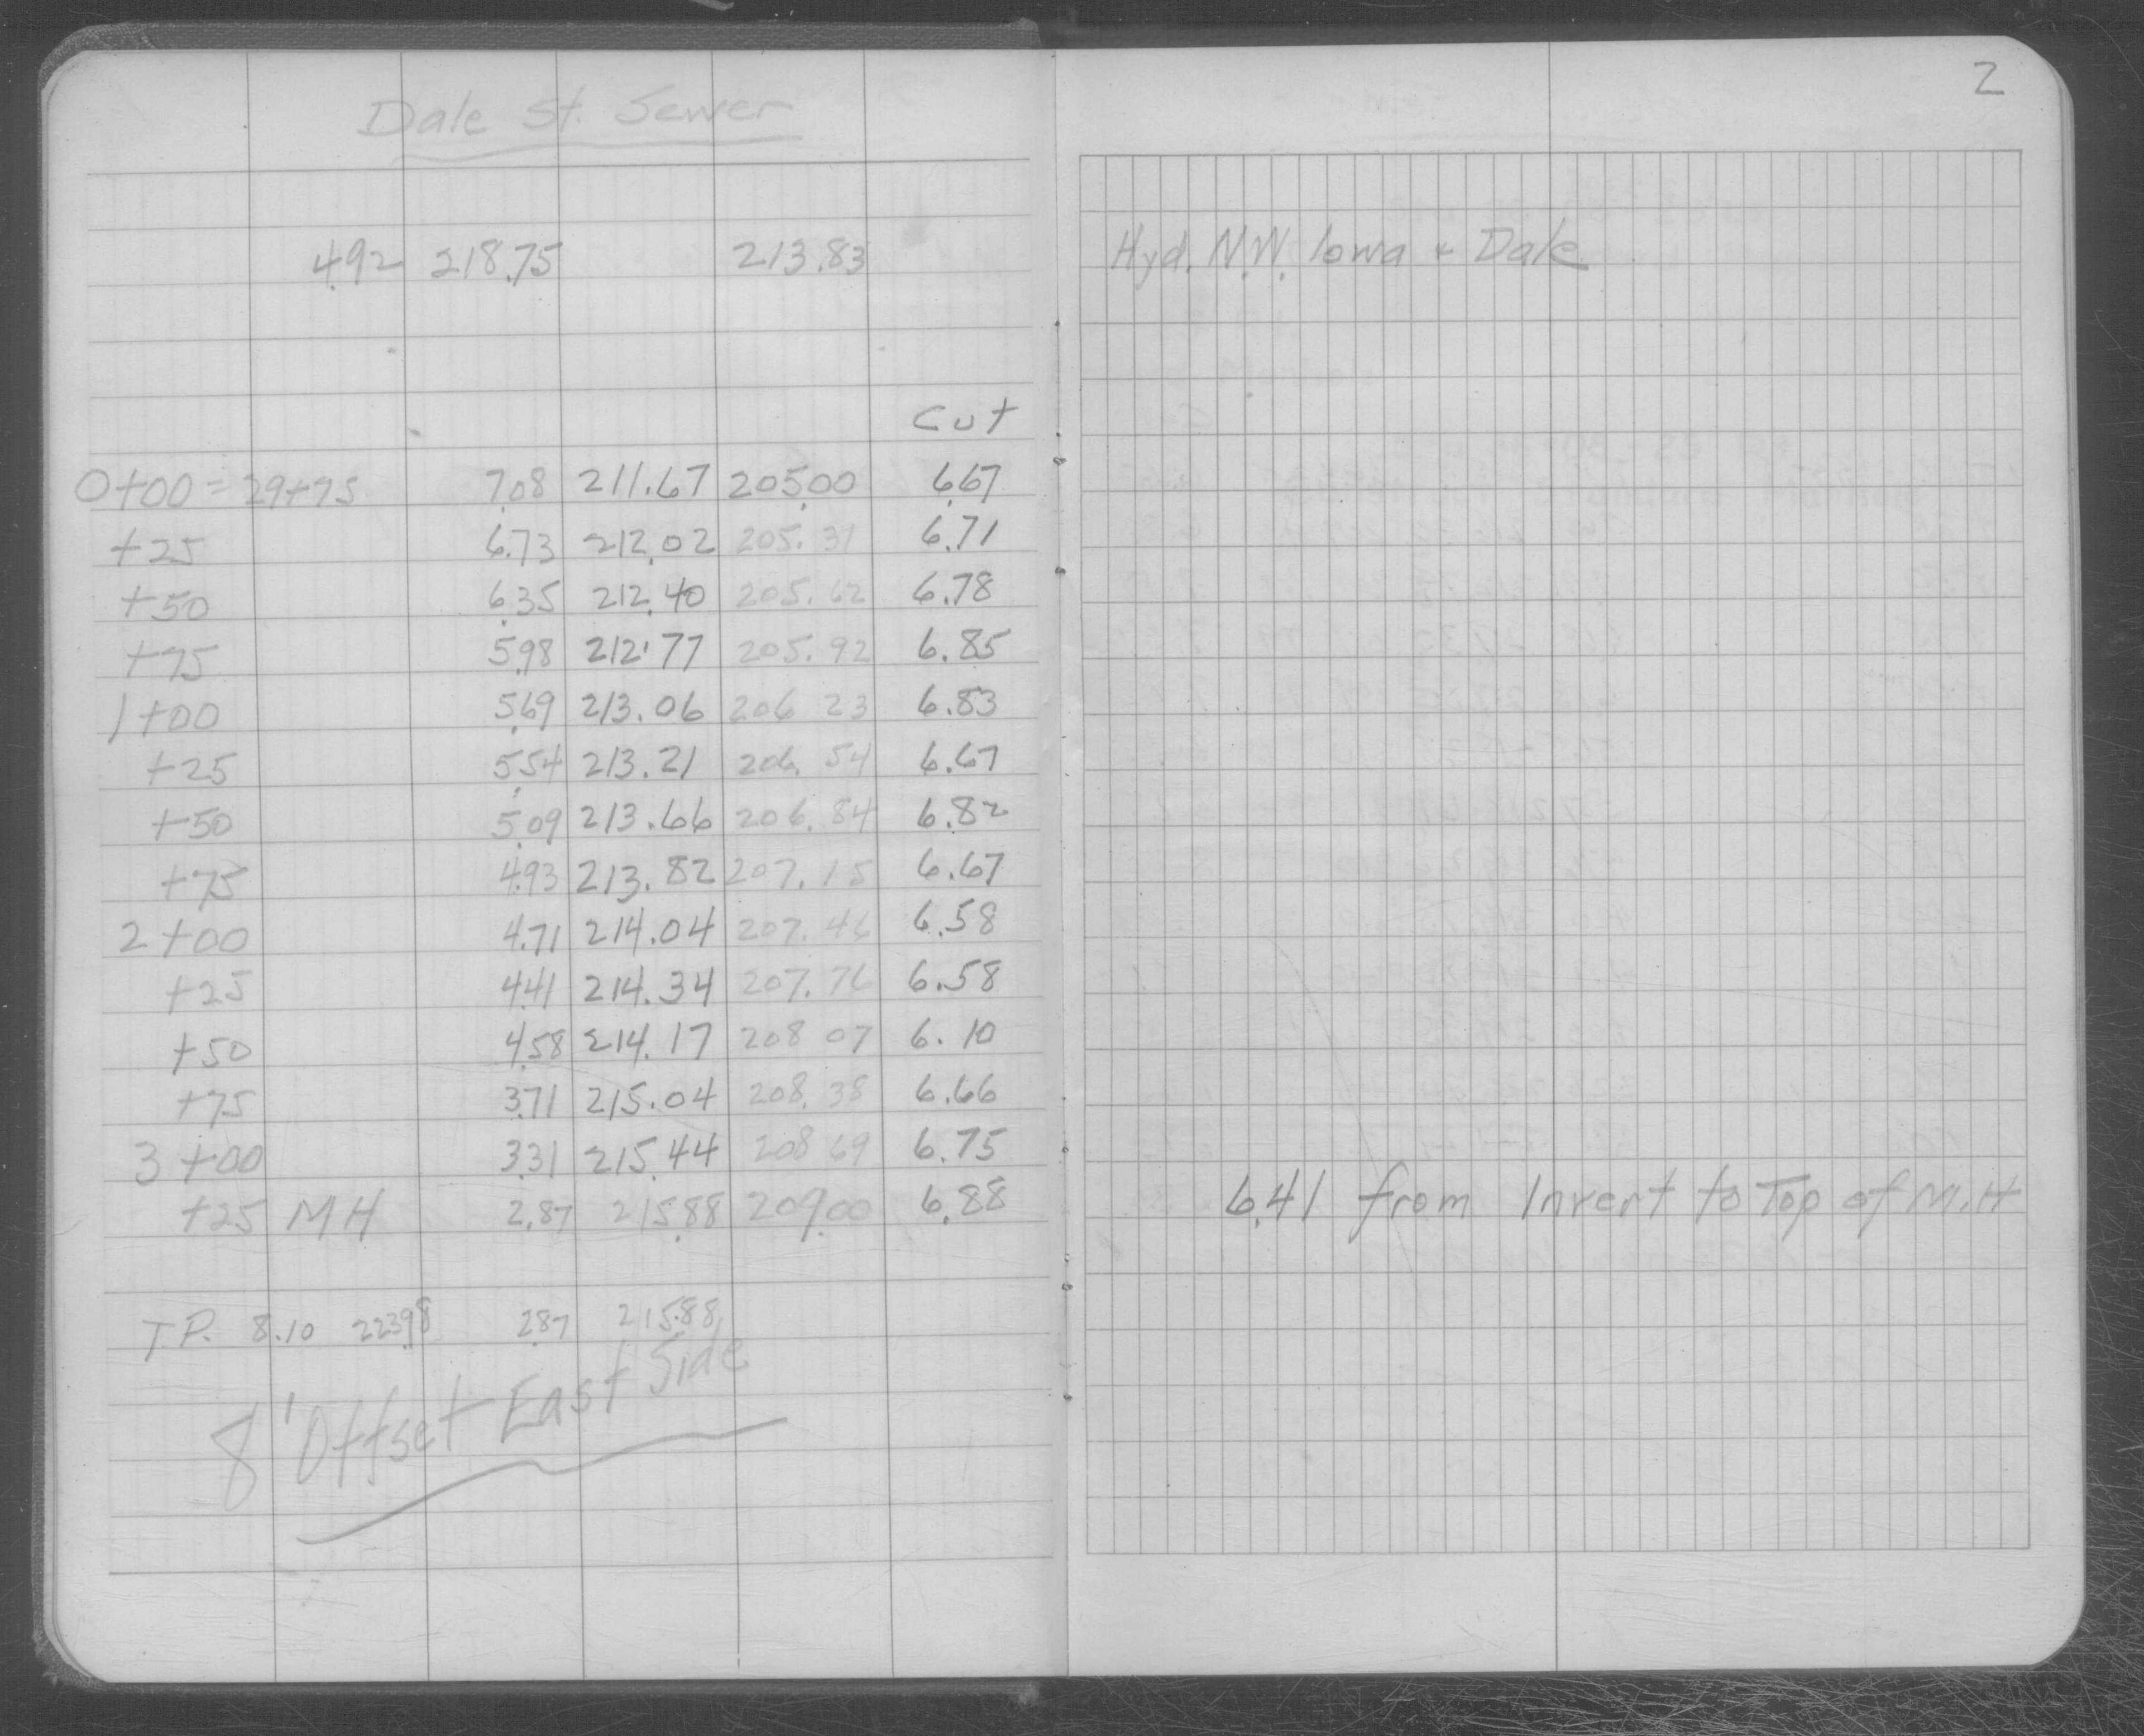 2
Dale St. Sewer
4.92 218.75 213.83 Hyd. N.W. Iowa + Dale
Cut
0+00 = 29+75 7.08 211.67 205.00 6.67
+25 6.73 212.02 205.31 6.71
+50 6.35 212.40 205.62 6.78
+75 5.98 212.77 205.92 6.85
1+00 5.69 213.06 206.23 6.83
+25 5.54 213.21 206.54 6.67
+50 5.09 213.66 206.84 6.82
+75 4.93 213.82 207.15 6.67
2+00 4.71 214.04 207.46 6.58
+25 4.41 214.34 207.76 6.58
+50 4.58 214.17 208.07 6.10
+75 3.71 215.04 208.38 6.66
3+00 3.31 215.44 208.69 6.75
+25 MH 2.87 215.88 209.00 6.88 6.41 from Invert to Top of M.H
T.P. 8.10 223.98 2.87 215.88
8' Offset East Side